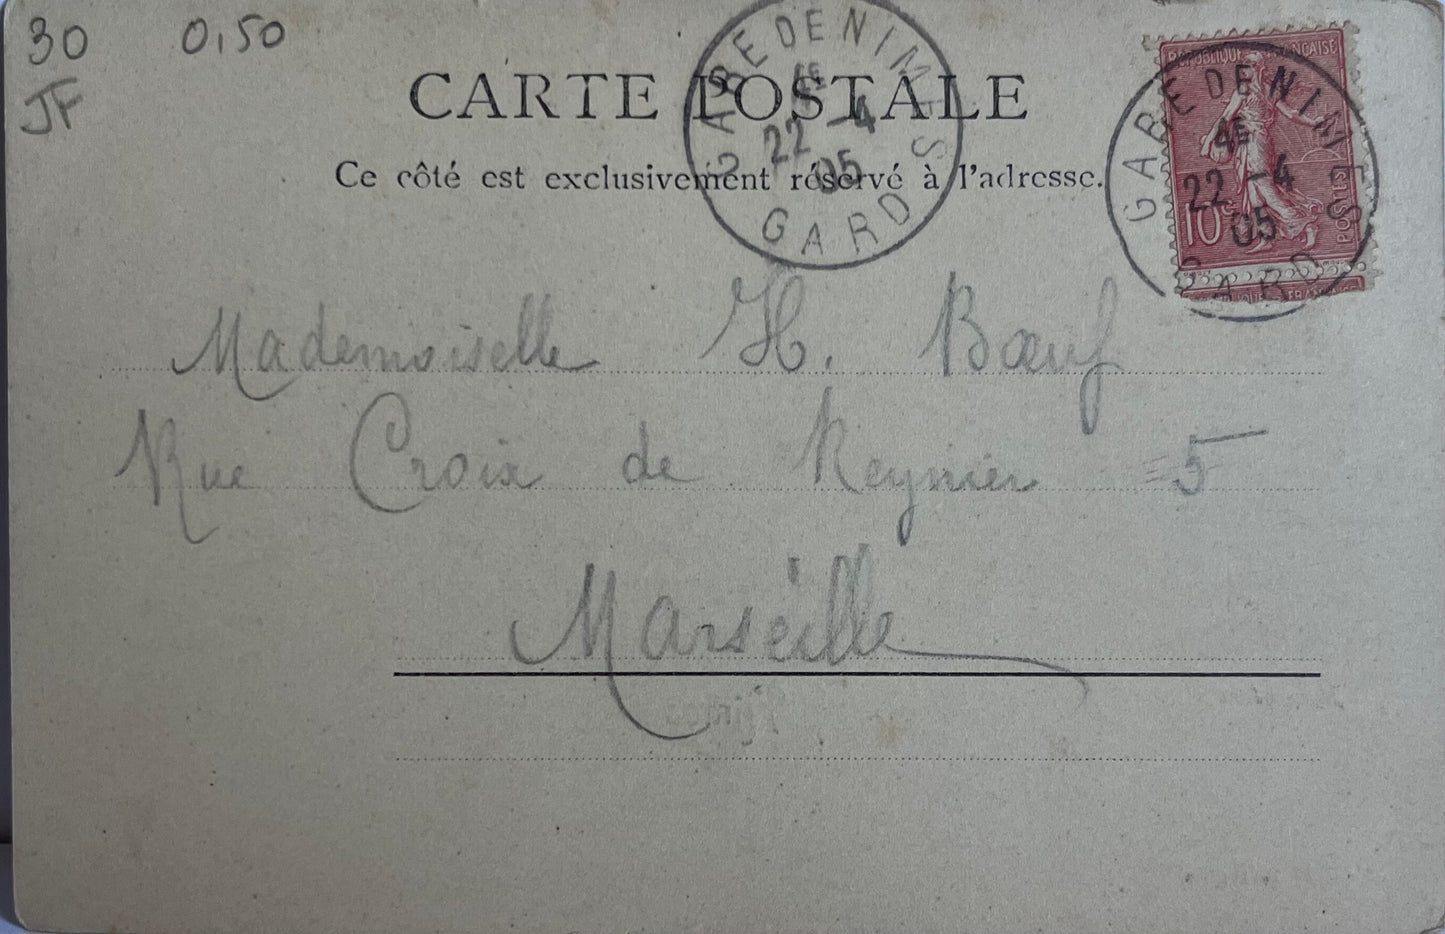 30 0,50
JF
CARTE POSTALE
Ce côté est exclusivement réservé à l'adresse.
GARE DE NIMES
4E
22 -4
05
GARD
RÉPUBLIQUE FRANÇAISE
10c
POSTES
GARE DE NIMES
4E
22 -4
05
GARD
Mademoiselle H. Bœuf
Rue Croix de Reynier 5
Marseille